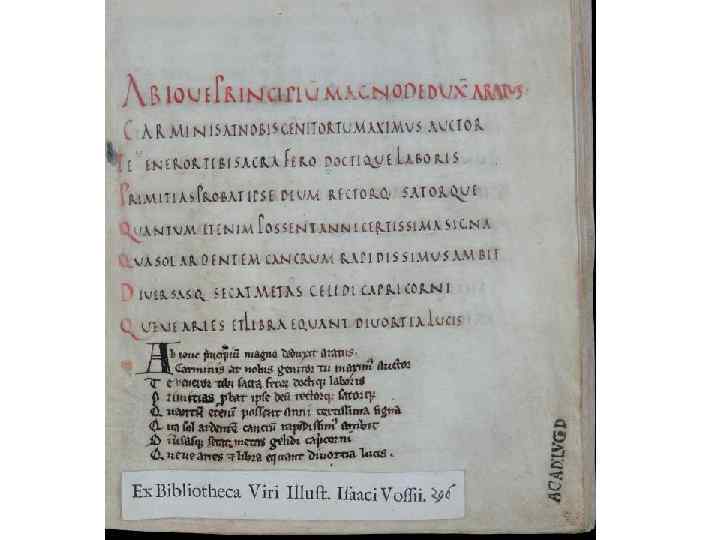 AB IOUE PRINCIPIŪ MAGNO DEDUX̄ ARATUS
CARMINIS AT NOBIS GENITOR TU MAXIMUS AUCTOR
TE UENEROR TIBI SACRA FERO DOCTIQUE LABORIS
PRIMITIAS PROBAT IPSE DEUM RECTORQ SATORQUE
QUANTUM ETENIM POSSENT ANNI CERTISSIMA SIGNA
QUA SOL ARDENTEM CANCRUM RAPIDISSIMUS AMBIT
DIUERSASQ SECAT METAS GELIDI CAPRICORNI
QUEUE ARIES ET LIBRA EQUANT DIUORTIA LUCIS
Ab ioue principiū magno deduxit aratus.
Carminis at nobis genitor tu maxim' auctor
Te ueneror tibi sacra fero doctiq; laboris
Primitias ꝓbat ipse deū rectorq; satorq;
Quantū etenī possent anni certissima signa
Qua sol ardentē cancrū rapidissim' ambit
Diuersasq; secat metas gelidi capricorni
Queue aries ⁊ libra equant diuortia lucis.
Ex Bibliotheca Viri Illust. Isaaci Vossii. 296
ACAD.LVGD